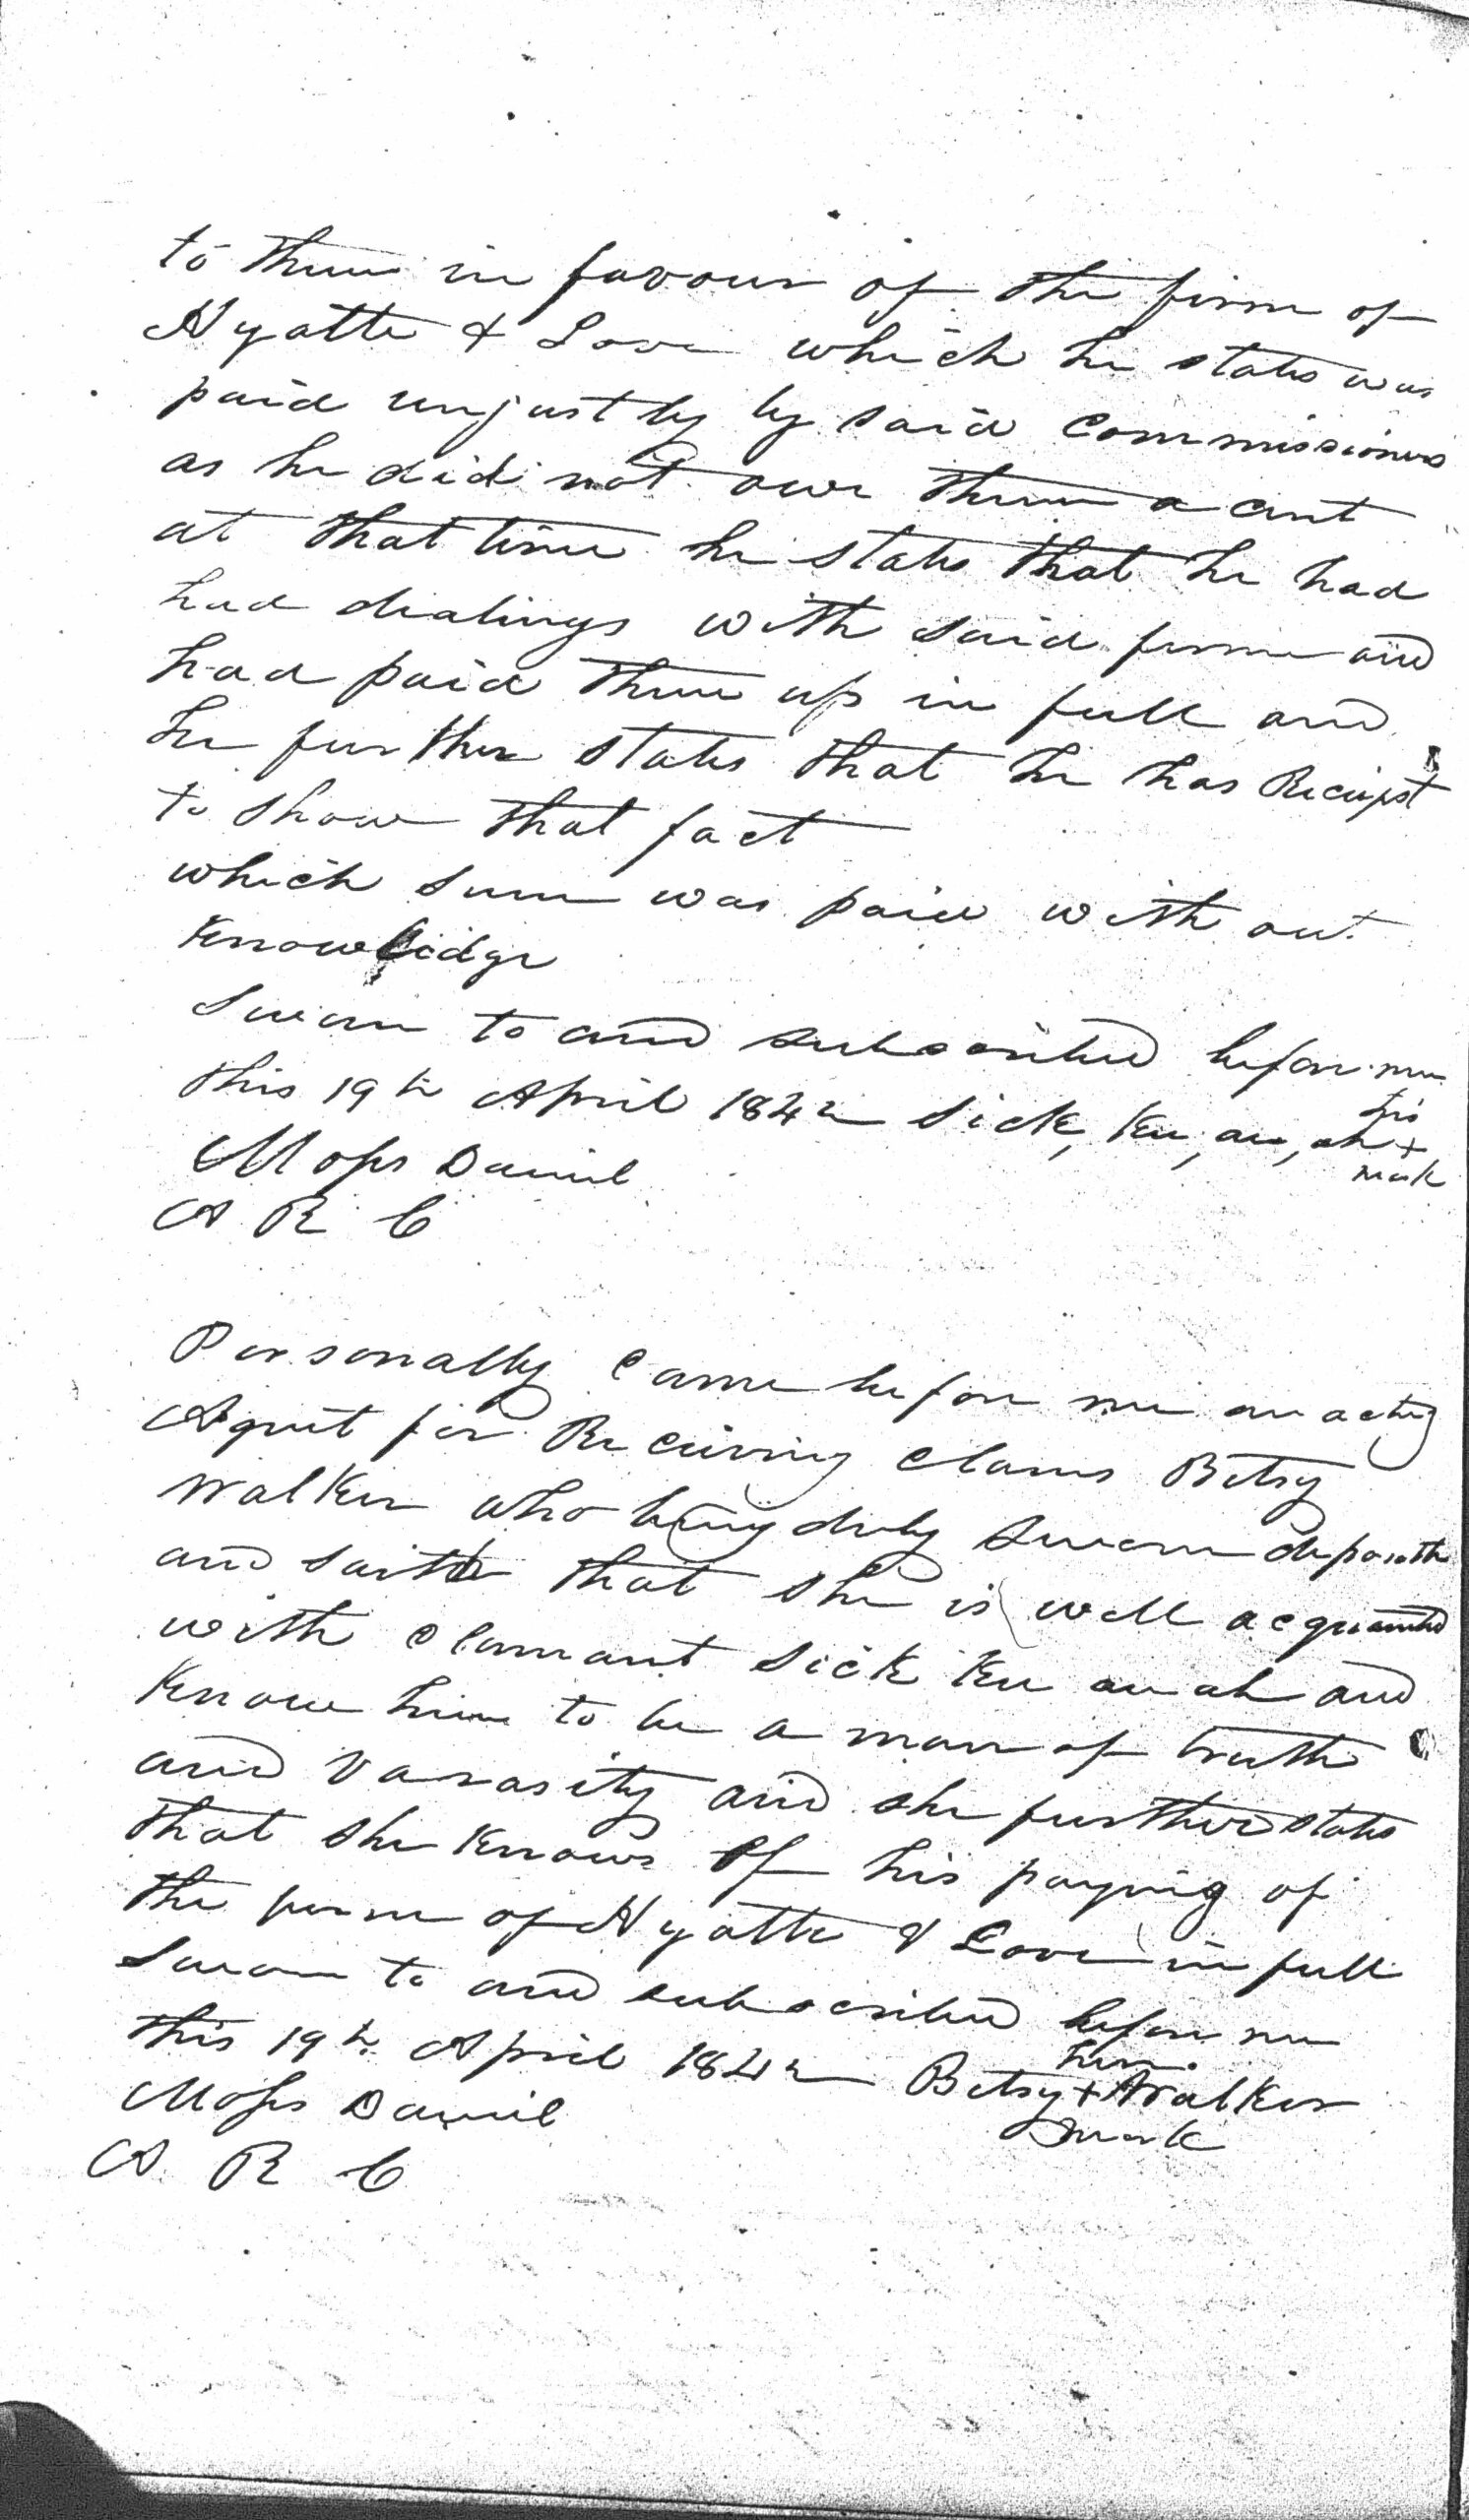 to them in favour of the firm of
Hyatte & Love which he states was
paid unjustly by said Commissioners
as he did not owe them a cent
at that time he states that he had
had dealings with said firm and
had paid them up in full and
he further states that he has Receipts
to show that fact
which sum was paid with out
Knowledge
Sworn to and subscribed before me
this 19th April 1842 Sick, Ku, au, ah his + mark
Moses Daniel
A R C
Personally came before me an acting
Agent for Receiving clames Betsy
Walker who being duly sworn deposeth
and saith that she is well acquainted
with clamant Sick Ku au ah and
Know him to be a man of truth
and varasity and she further states
that she Knows of his paying of
the firm of Hyatte & Love in full
Sworn to and subscribed before me
this 19th April 1842 Betsy her + mark Walker
Moses Daniel
A R C